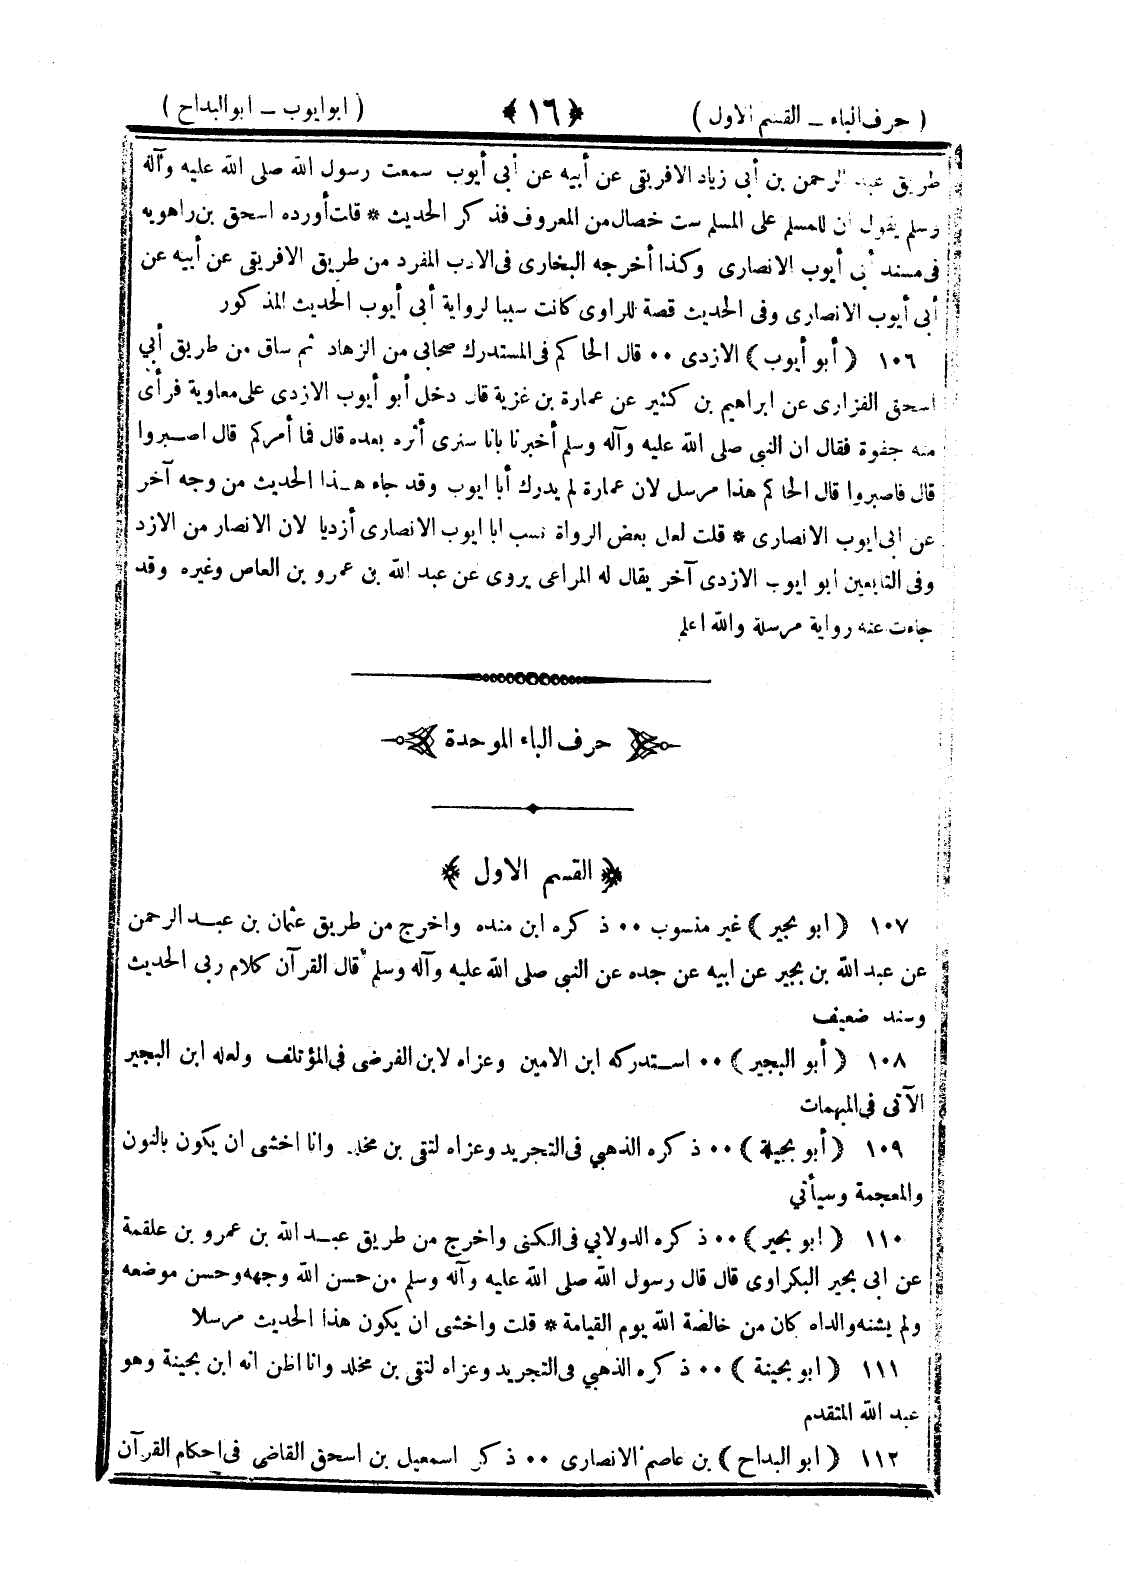 ( حرف الباء ـ القسم الاول ) ﴿ ١٦ ﴾ ( ابو ايوب ـ ابو البداح )
طريق عبد الرحمن بن أبى زياد الافريقى عن أبيه عن أبى أيوب سمعت رسول الله صلى الله عليه وآله
وسلم يقول ان للمسلم على المسلم ست خصال من المعروف فذكر الحديث * قلت أورده اسحق بن راهويه
فى مسند أبى أيوب الانصارى وكذا أخرجه البخارى فى الادب المفرد من طريق الافريقى عن أبيه عن
أبى أيوب الانصارى وفى الحديث قصة للراوى كانت سببا لرواية أبى أيوب الحديث المذكور
١٠٦ ( أبو أيوب ) الازدى ٠٠ قال الحاكم فى المستدرك صحابى من الزهاد ثم ساق من طريق أبي
اسحق الفزارى عن ابراهيم بن كثير عن عمارة بن غزية قال دخل أبو أيوب الازدى على معاوية فرأى
منه جفوة فقال ان النبى صلى الله عليه وآله وسلم أخبرنا بانا سنرى أثره بعده قال فما أمركم قال اصبروا
قال فاصبروا قال الحاكم هذا مرسل لان عمارة لم يدرك أبا ايوب وقد جاء هذا الحديث من وجه آخر
عن ابى ايوب الانصارى * قلت لعل بعض الرواة نسب ابا ايوب الانصارى أزديا لان الانصار من الازد
وفى التابعين ابو ايوب الازدى آخر يقال له المراعى يروى عن عبد الله بن عمرو بن العاص وغيره وقد
جاءت عنه رواية مرسلة والله اعلم
حرف الباء الموحدة
﴿ القسم الاول ﴾
١٠٧ ( ابو بجير ) غير منسوب ٠٠ ذكره ابن منده واخرج من طريق عثمان بن عبد الرحمن
عن عبد الله بن بجير عن ابيه عن جده عن النبى صلى الله عليه وآله وسلم قال القرآن كلام ربى الحديث
وسند ضعيف
١٠٨ ( أبو البجير ) ٠٠ استدركه ابن الامين وعزاه لابن الفرضى فى المؤتلف ولعله ابن البجير
الآتى فى المبهمات
١٠٩ ( أبو بجيلة ) ٠٠ ذكره الذهبي فى التجريد وعزاه لتقى بن مخلد وانا اخشى ان يكون بالنون
والمعجمة وسيأتي
١١٠ ( ابو بحير ) ٠٠ ذكره الدولابي فى الكنى واخرج من طريق عبد الله بن عمرو بن علقمة
عن ابى بحير البكراوى قال قال رسول الله صلى الله عليه وآله وسلم من حسن الله وجهه وحسن موضعه
ولم يشنه والداه كان من خالصة الله يوم القيامة * قلت واخشى ان يكون هذا الحديث مرسلا
١١١ ( ابو بحينة ) ٠٠ ذكره الذهبي فى التجريد وعزاه لتقى بن مخلد وانا اظن انه ابن بحينة وهو
عبد الله المتقدم
١١٢ ( ابو البداح ) بن عاصم الانصارى ٠٠ ذكر اسمعيل بن اسحق القاضى فى احكام القرآن